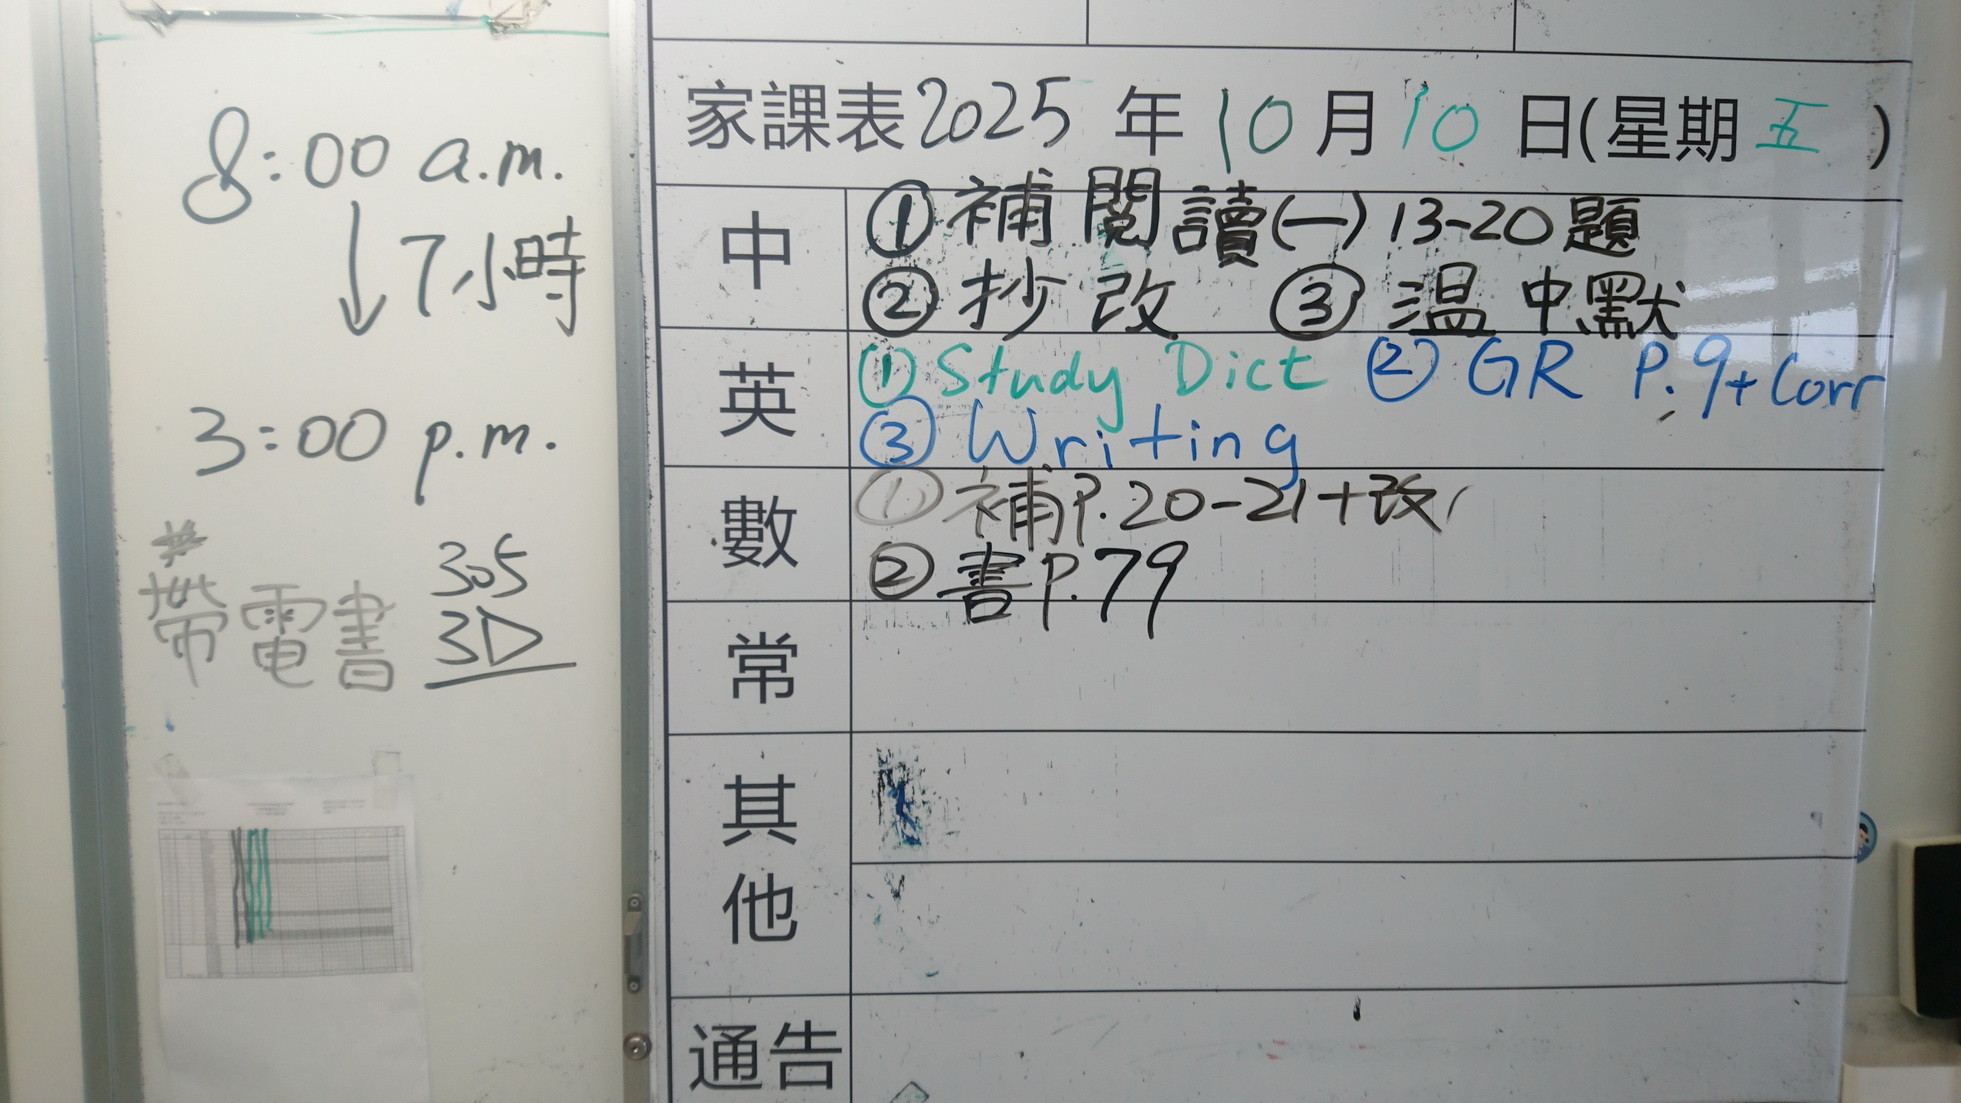 8:00 a.m.
7小時
3:00 p.m.
*帶電書
305
3D
家課表2025年10月10日(星期五)
中
①補閱讀(一)13-20題
②抄改 ③溫中默
英
①Study Dict ②GR P.9+Corr
③Writing
數
①補P.20-21+改
②書P.79
常
其他
通告